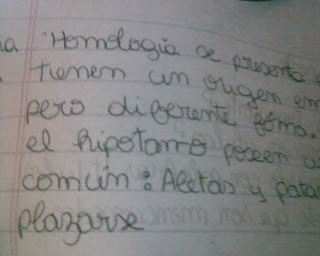 na Homología se presenta
tienem un origen em
pero diferente
el hipotamo poseen u
común: Aletas y pata
plazarse